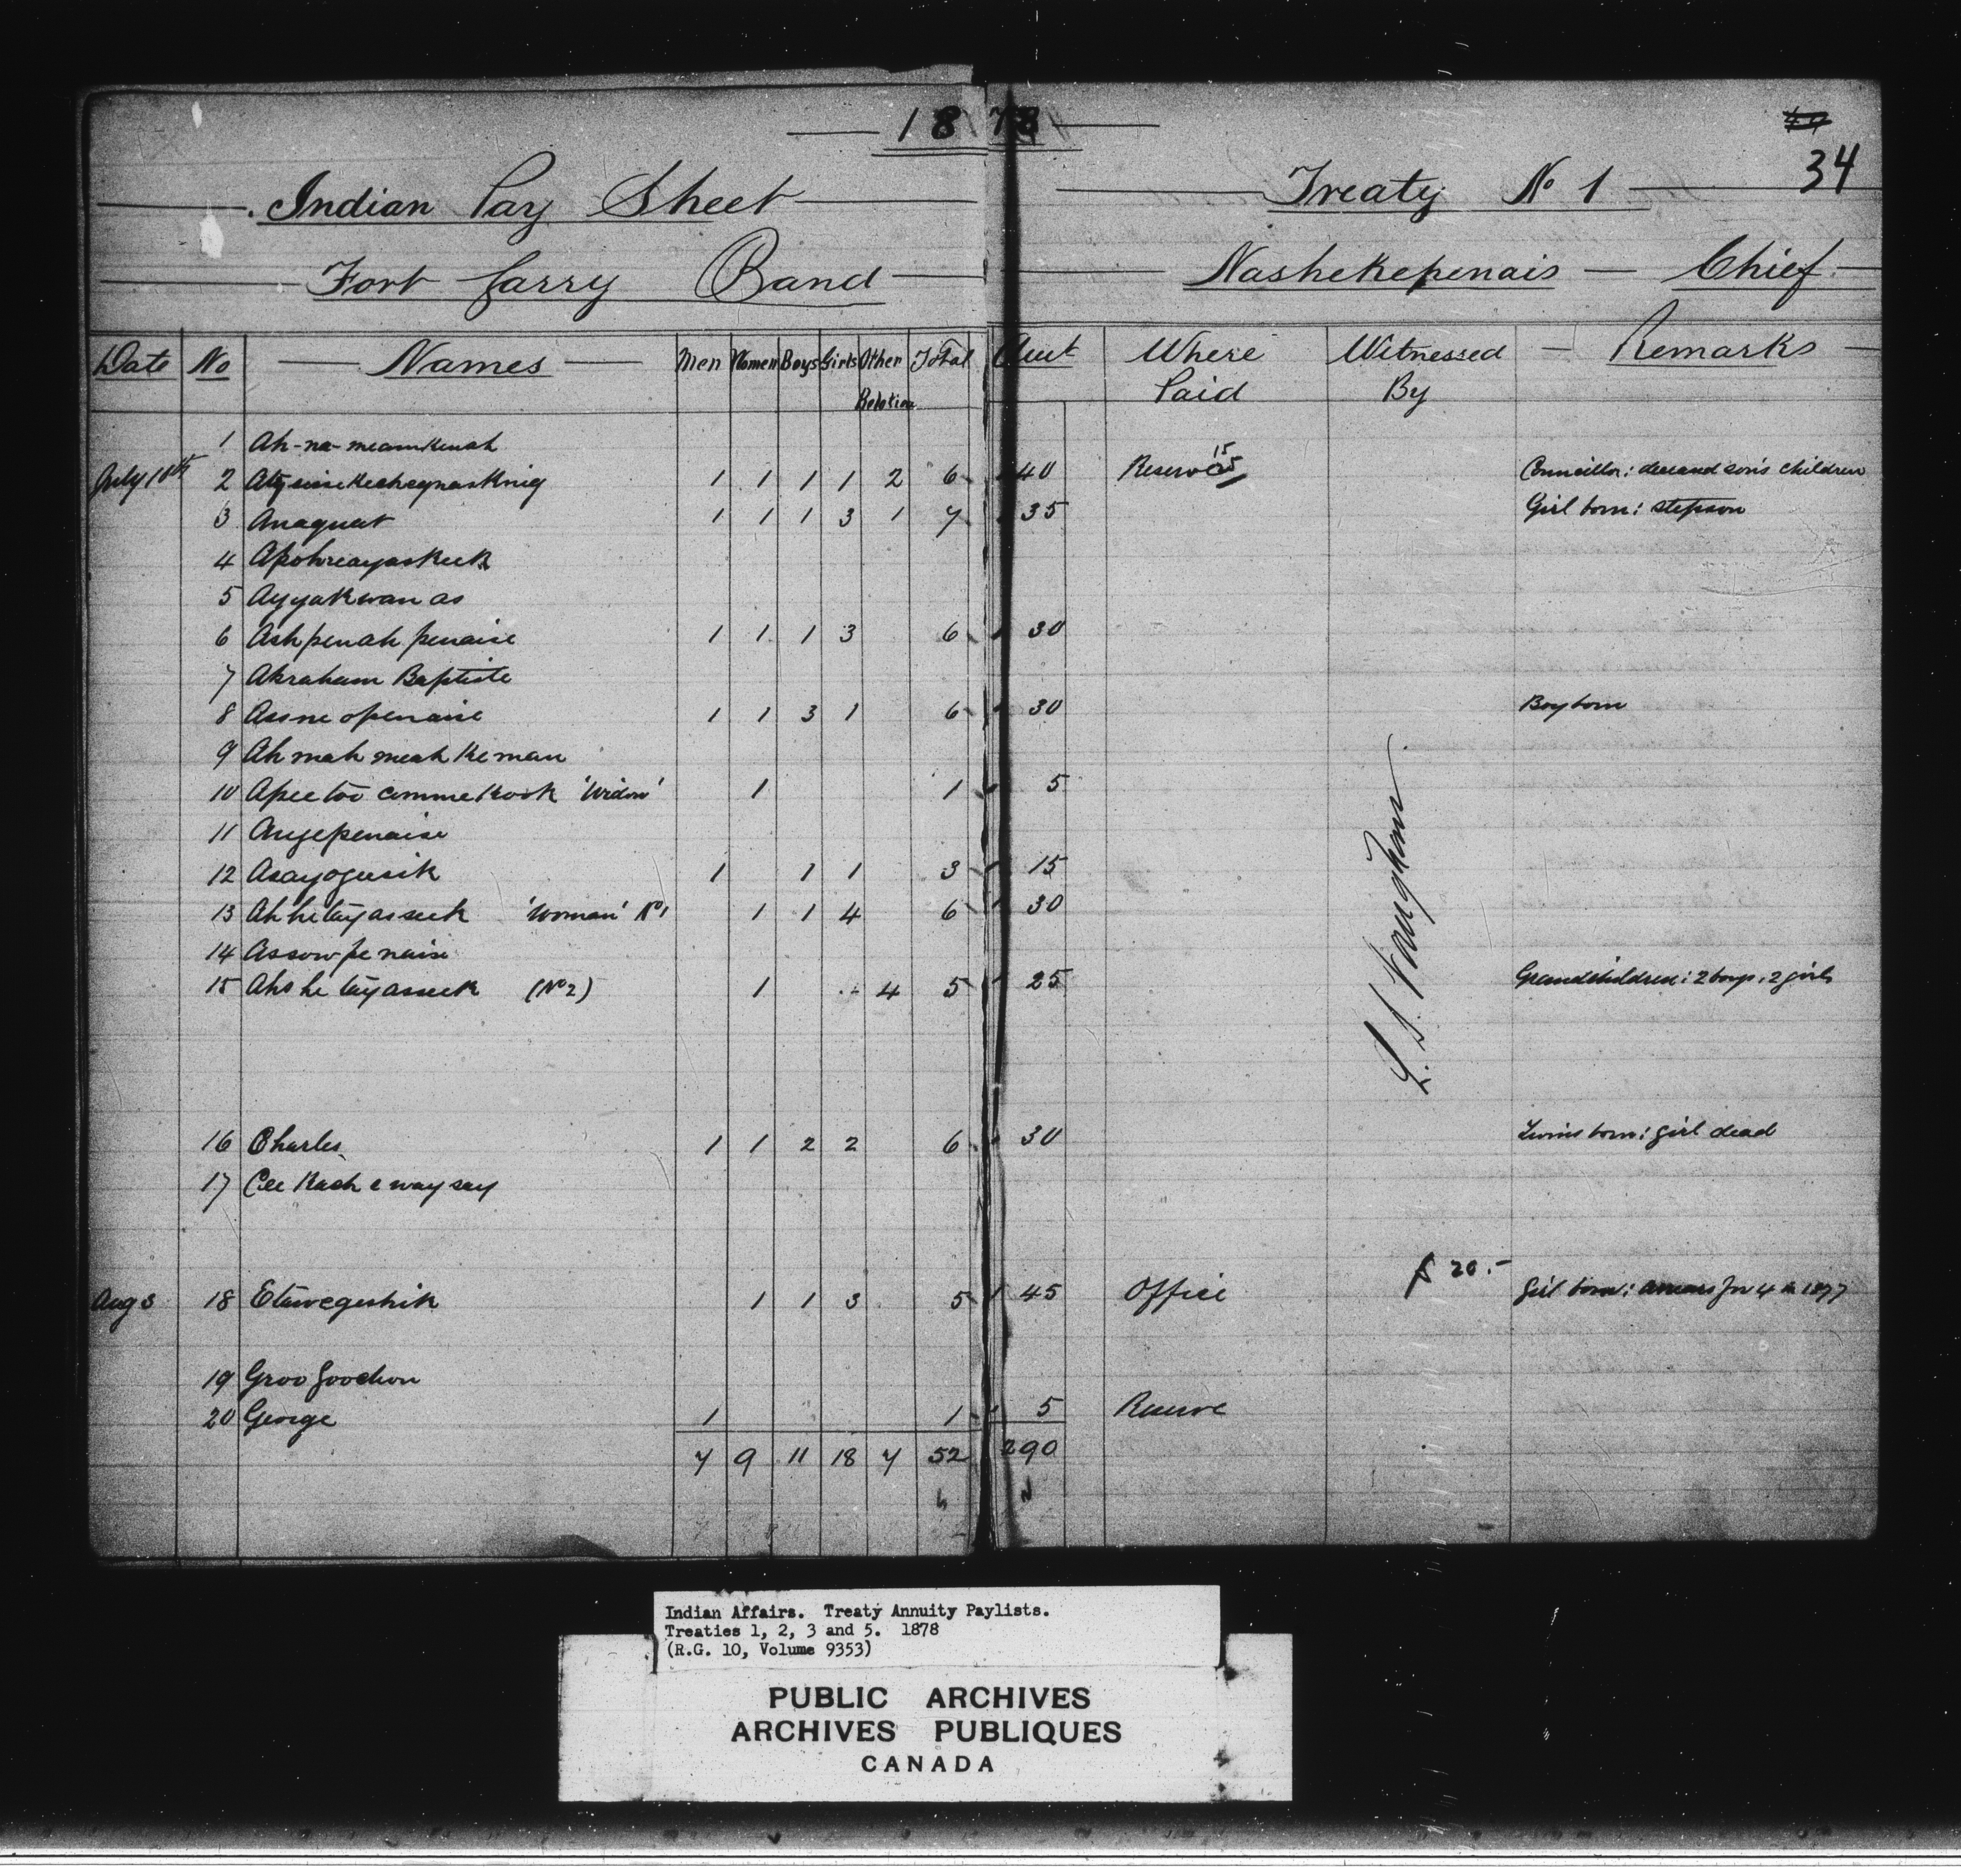 1878
34
Indian Pay Sheet Treaty No 1
Fort Garry Band Nashekepenais — Chief
Date No Names Men Women Boys Girls Other Relation Total Amt Where Paid Witnessed By Remarks
1
July 10th 2 1 1 1 1 2 6 40 Reserve 15 Councillor: deceased son's children
3 Anaquat 1 1 1 3 1 7 35 Girl born: stepson
4
5 Ayyakwanas
6 Ashpenah penaise 1 1 1 3 6 30
7 Abraham Baptiste
8 Assneopenaise 1 1 3 1 6 30 Boy born
9 Ah mah meah ke man
10 'Widow' 1 1 5
11 Angepenaise
12 Asayogusik 1 1 1 3 15
13 'Woman' No 1 1 1 4 6 30
14 Assowpenaise
15 (No 2) 1 4 5 25 Grandchildren: 2 boys, 2 girls
L. S. Vaughan
16 Charles 1 1 2 2 6 30 Twins born: girl dead
17 Cee Kash e way say
$ 20.-
Aug 3 18 Etawegeshik 1 1 3 5 45 Office Girl born: arrears for 4 in 1877
19
20 George 1 1 5 Reserve
7 9 11 18 7 52 290
Indian Affairs. Treaty Annuity Paylists.
Treaties 1, 2, 3 and 5. 1878
(R.G. 10, Volume 9353)
PUBLIC ARCHIVES
ARCHIVES PUBLIQUES
CANADA